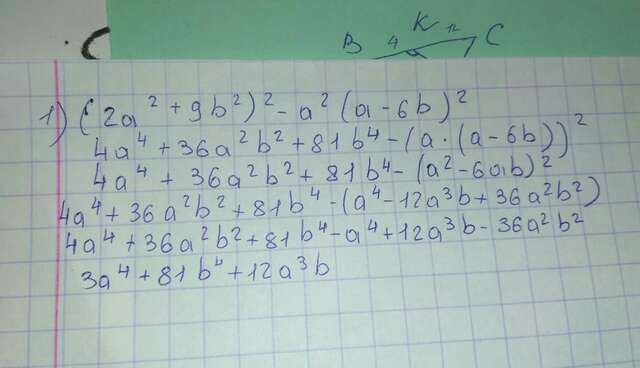 B 4 K 12 C
1) (2a² + 9b²)² - a² (a - 6b)²
4a⁴ + 36a²b² + 81b⁴ - (a · (a - 6b))²
4a⁴ + 36a²b² + 81b⁴ - (a² - 6ab)²
4a⁴ + 36a²b² + 81b⁴ - (a⁴ - 12a³b + 36a²b²)
4a⁴ + 36a²b² + 81b⁴ - a⁴ + 12a³b - 36a²b²
3a⁴ + 81b⁴ + 12a³b